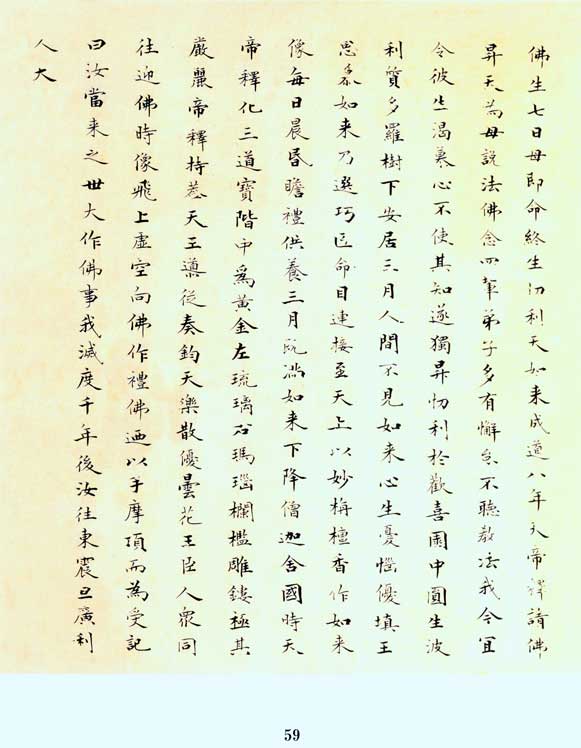 佛生七日母即命終生忉利天如来成道八年天帝釋請佛
昇天為母說法佛念四輩弟子多有懈怠不聽教法我今冝
令彼生渴慕心不使其知遂獨昇忉利於歡喜園中圓生波
利質多羅樹下安居三月人間不見如来心生憂惱優填王
思慕如来乃選巧匠命目連接至天上以妙栴檀香作如来
像每日晨昏瞻禮供養三月既滿如来下降僧迦舍國時天
帝釋化三道寶階中為黃金左琉璃右瑪瑙欄檻雕鏤極其
嚴麗帝釋持葢天王導從奏鈞天樂散優曇花王臣人衆同
往迎佛時像飛上虛空向佛作禮佛迺以手摩頂而為受記
曰汝當来之世大作佛事我滅度千年後汝往東震旦廣利
人大
59